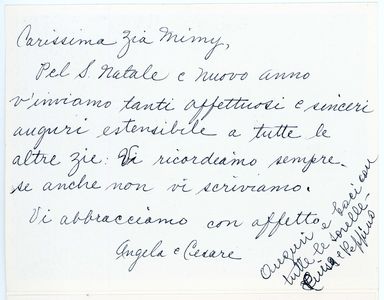 Carissima Zia Mimy,
Pel S. Natale e nuovo anno
v'inviamo tanti affettuosi e sinceri
auguri estensibile a tutte le
altre zie. Vi ricordiamo sempre.
se anche non vi scriviamo.
Vi abbracciamo con affetto
Angela e Cesare
Auguri e baci con
tutte le sorelle
e Peppino